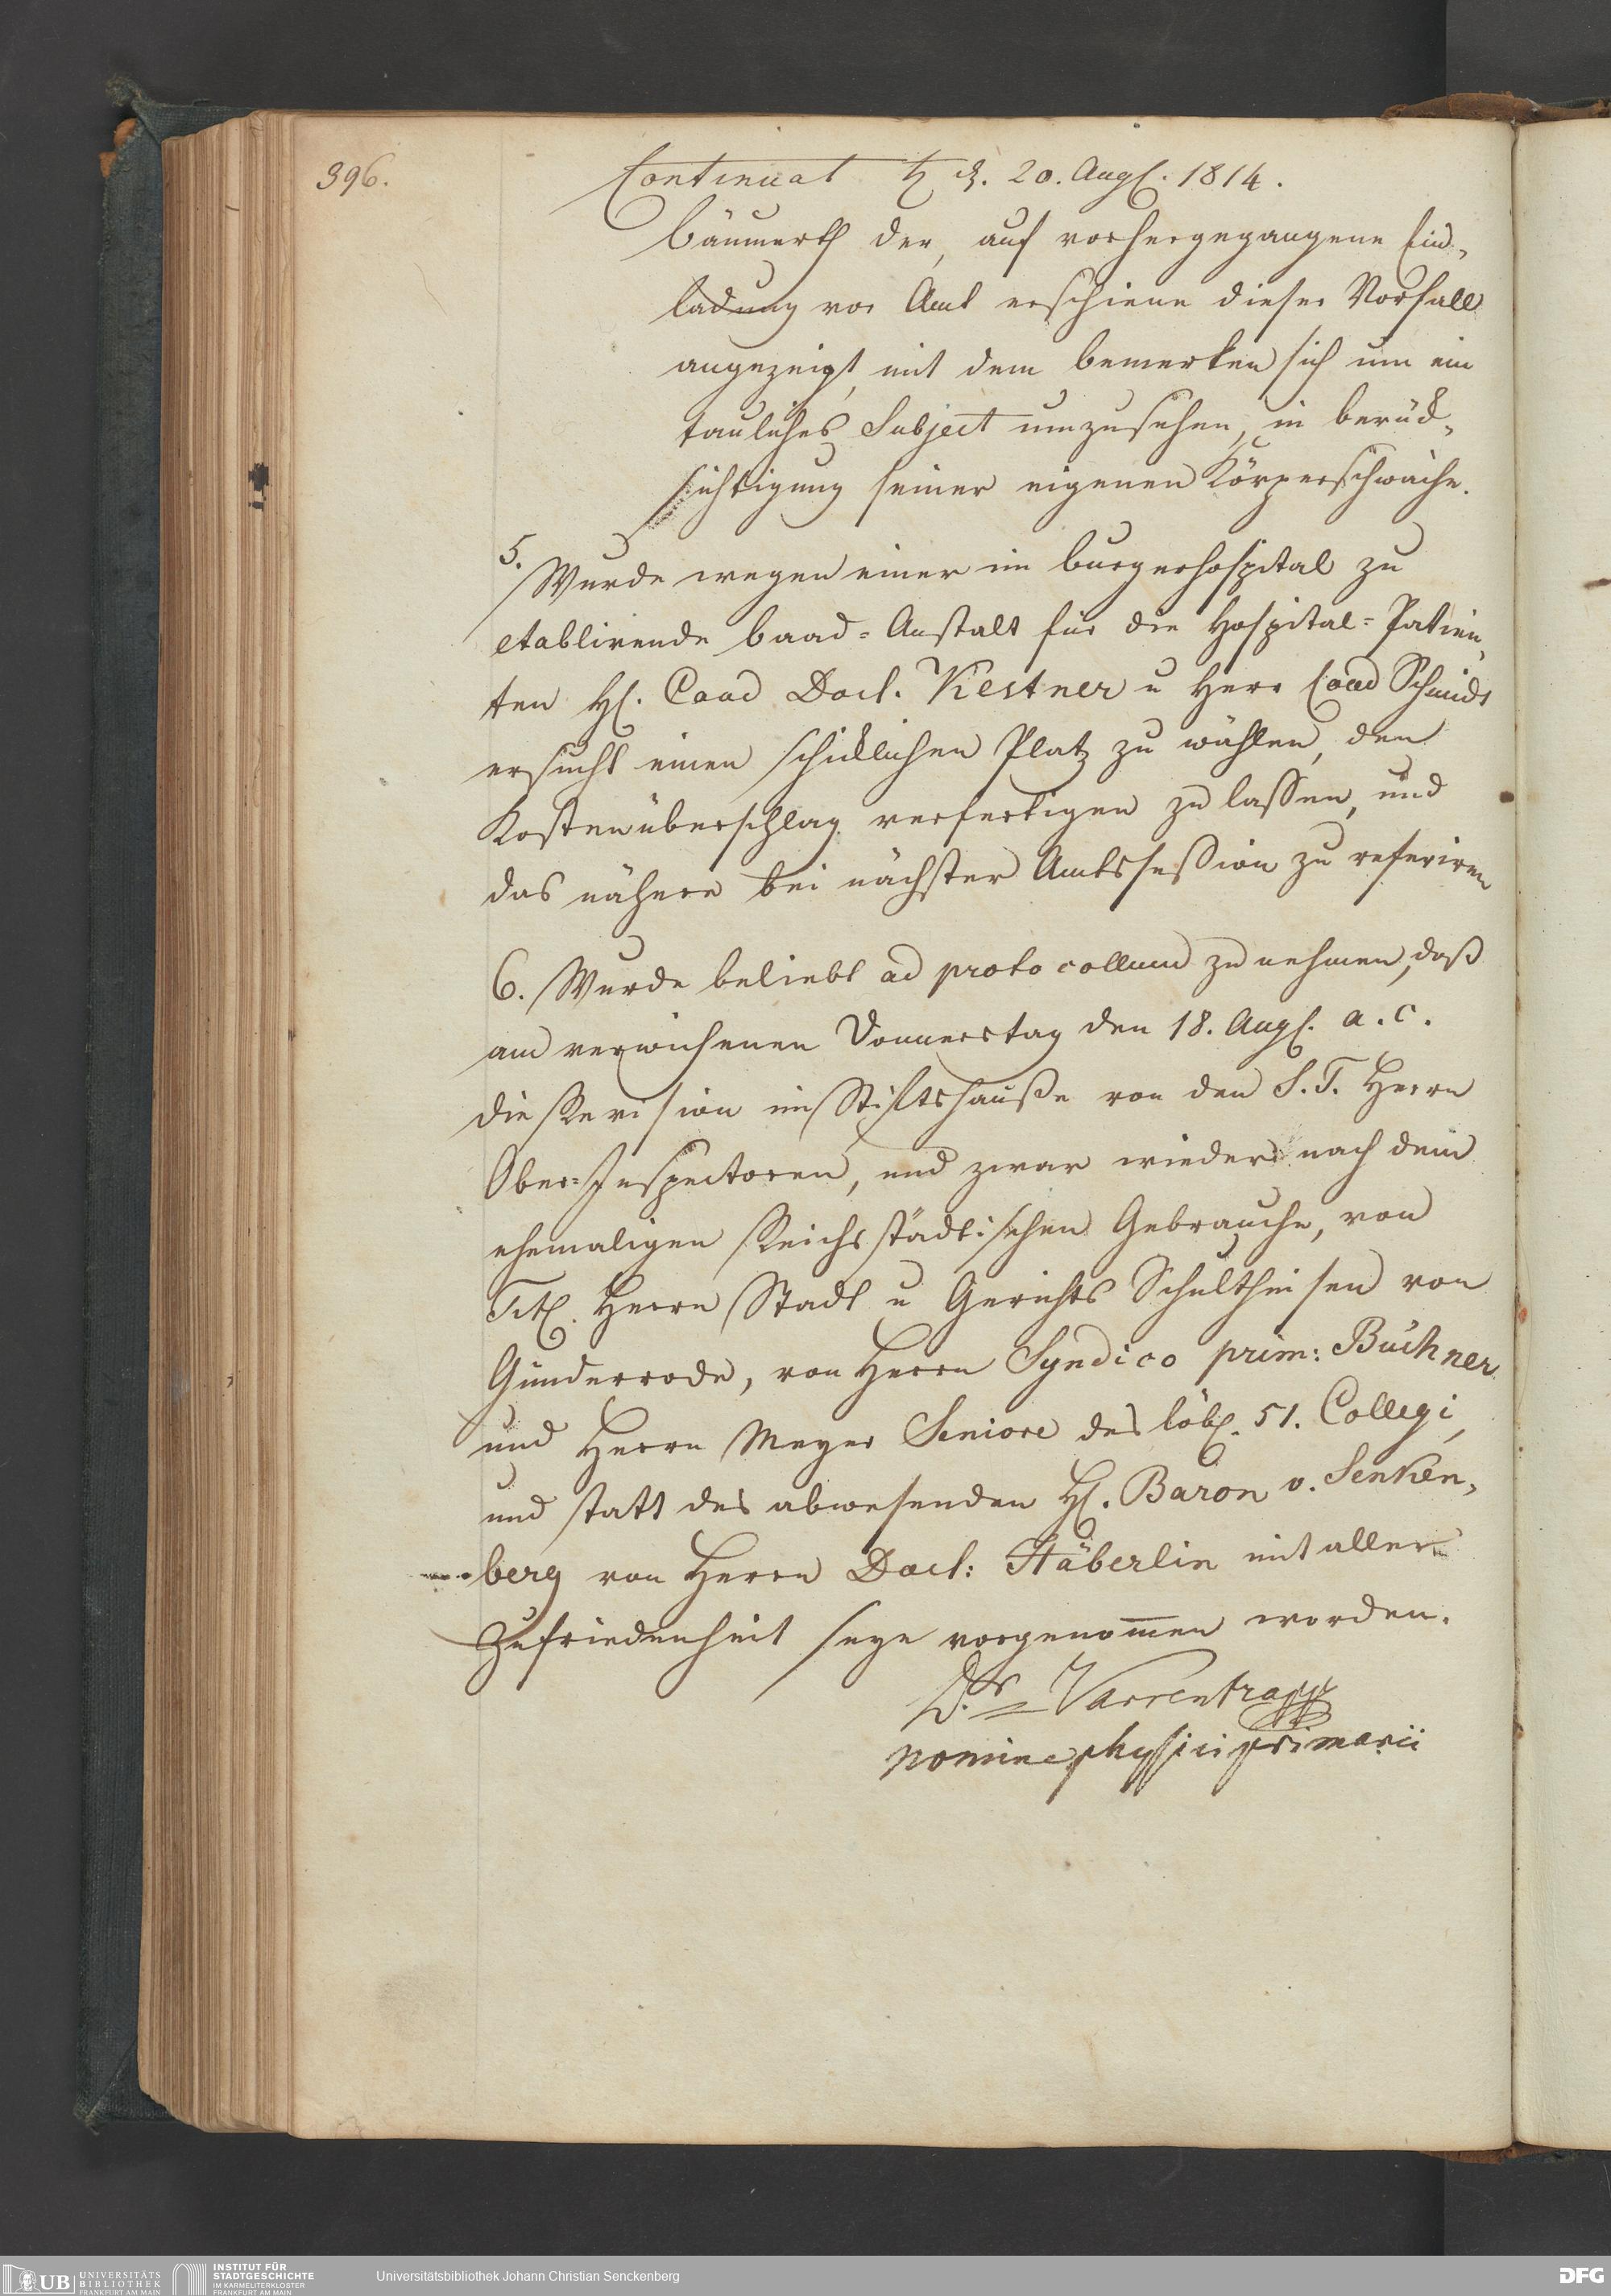 396.
Continuat ♄ d. 20. Augs. 1814.
bäumerth der, auf vorhergegangene Ein-
ladung vor Amt erschiene dieser Vorfall
angezeigt, mit dem bemerken sich um ein
taugliches Subject umzusehen, in berück-
sichtigung seiner eigenen Körperschwäche.
5. Wurde wegen einer im burgerhospital zu
etablirende baad-Anstalt für die Hospital-Patien-
ten Hr. Coad Doct. Kestner u Herr Coad Schmidt
ersucht einen schicklichen Platz zu wählen, den
Kostenüberschlag verfertigen zu lassen, und
das nähere bei nächster Amtssession zu referiren
6. Wurde beliebt ad protocollum zu nehmen, daß
am verwichenen Donnerstag den 18. Augs. a. c.
die Revision im Stiftshauße von den S. T. Herrn
Ober-Inspectoren, und zwar wieder nach dem
ehemaligen Reichsstädtischen Gebrauche, von
Titl. Herrn Stadt u Gerichts Schultheisen von
Günderrode, von Herrn Syndico prim: Büchner
und Herrn Meyer Seniore des löbl. 51. Collegi,
und statt des abwesenden Hr. Baron v. Senken-
berg von Herrn Doct: Häberlin mit aller
Zufriedenheit seye vorgenom̅en worden.
Dr. Varrentrapp
nomine physici primarii
UB UNIVERSITÄTS
BIBLIOTHEK
FRANKFURT AM MAIN
INSTITUT FÜR
STADTGESCHICHTE
IM KARMELITERKLOSTER
FRANKFURT AM MAIN
Universitätsbibliothek Johann Christian Senckenberg
DFG